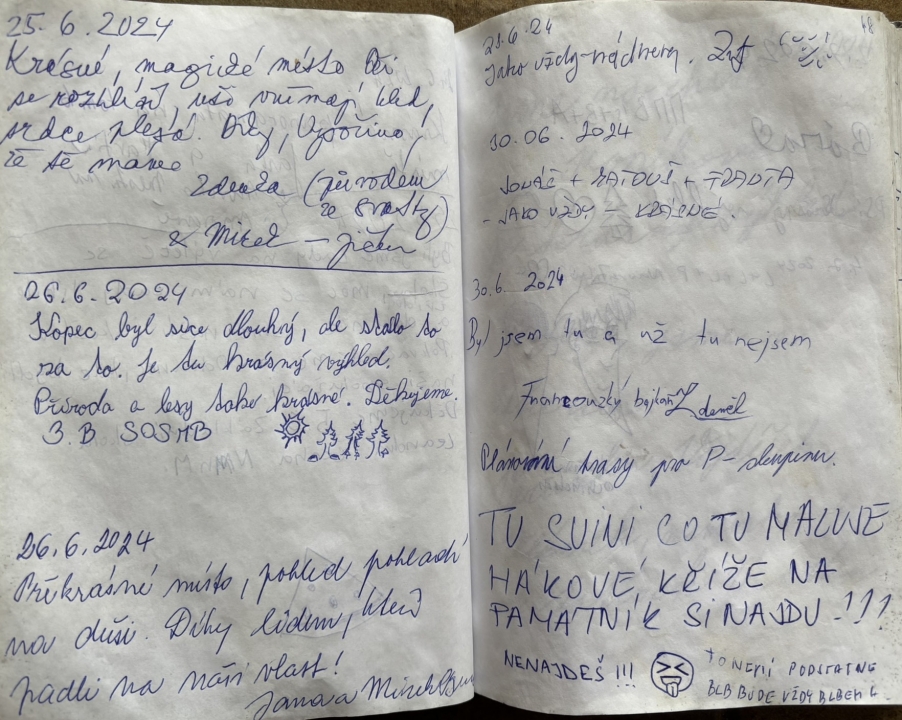 25.6.2024
Krásné, magické místo. Oči
se rozhlíží, uši vnímají klid,
srdce plesá. Díky, Vysočino,
že tě máme
Zdenka (původem
ze
& Mirek – Jičín
26.6.2024
Kopec byl sice dlouhý, ale stálo to
za to. Je tu krásný výhled.
Příroda a lesy také krásné. Děkujeme.
3.B SOSMB
26.6.2024
Překrásné místo, pohled pohladí
na duši. Díky lidem, kteří
padli na naší vlast!
Jana a Mirek
48
29.6.24
Jako vždy-nádhera.
30.06.2024
JONÁŠ + MATOUŠ + FRANTA
- JAKO VŽDY – KRÁSNÉ.
30.6.2024
Byl jsem tu a už tu nejsem
Francouzký bajkař Zdeněk
Plánování trasy pro P-skupinu.
TU SVINI CO TU MALUJE
HÁKOVÉ, KŘÍŽE NA
PAMATNÍK SI NAJDU!!!
NENAJDEŠ!!!
TO NENÍ PODSTATNÉ
BLB BUDE VŽDY BLBEM